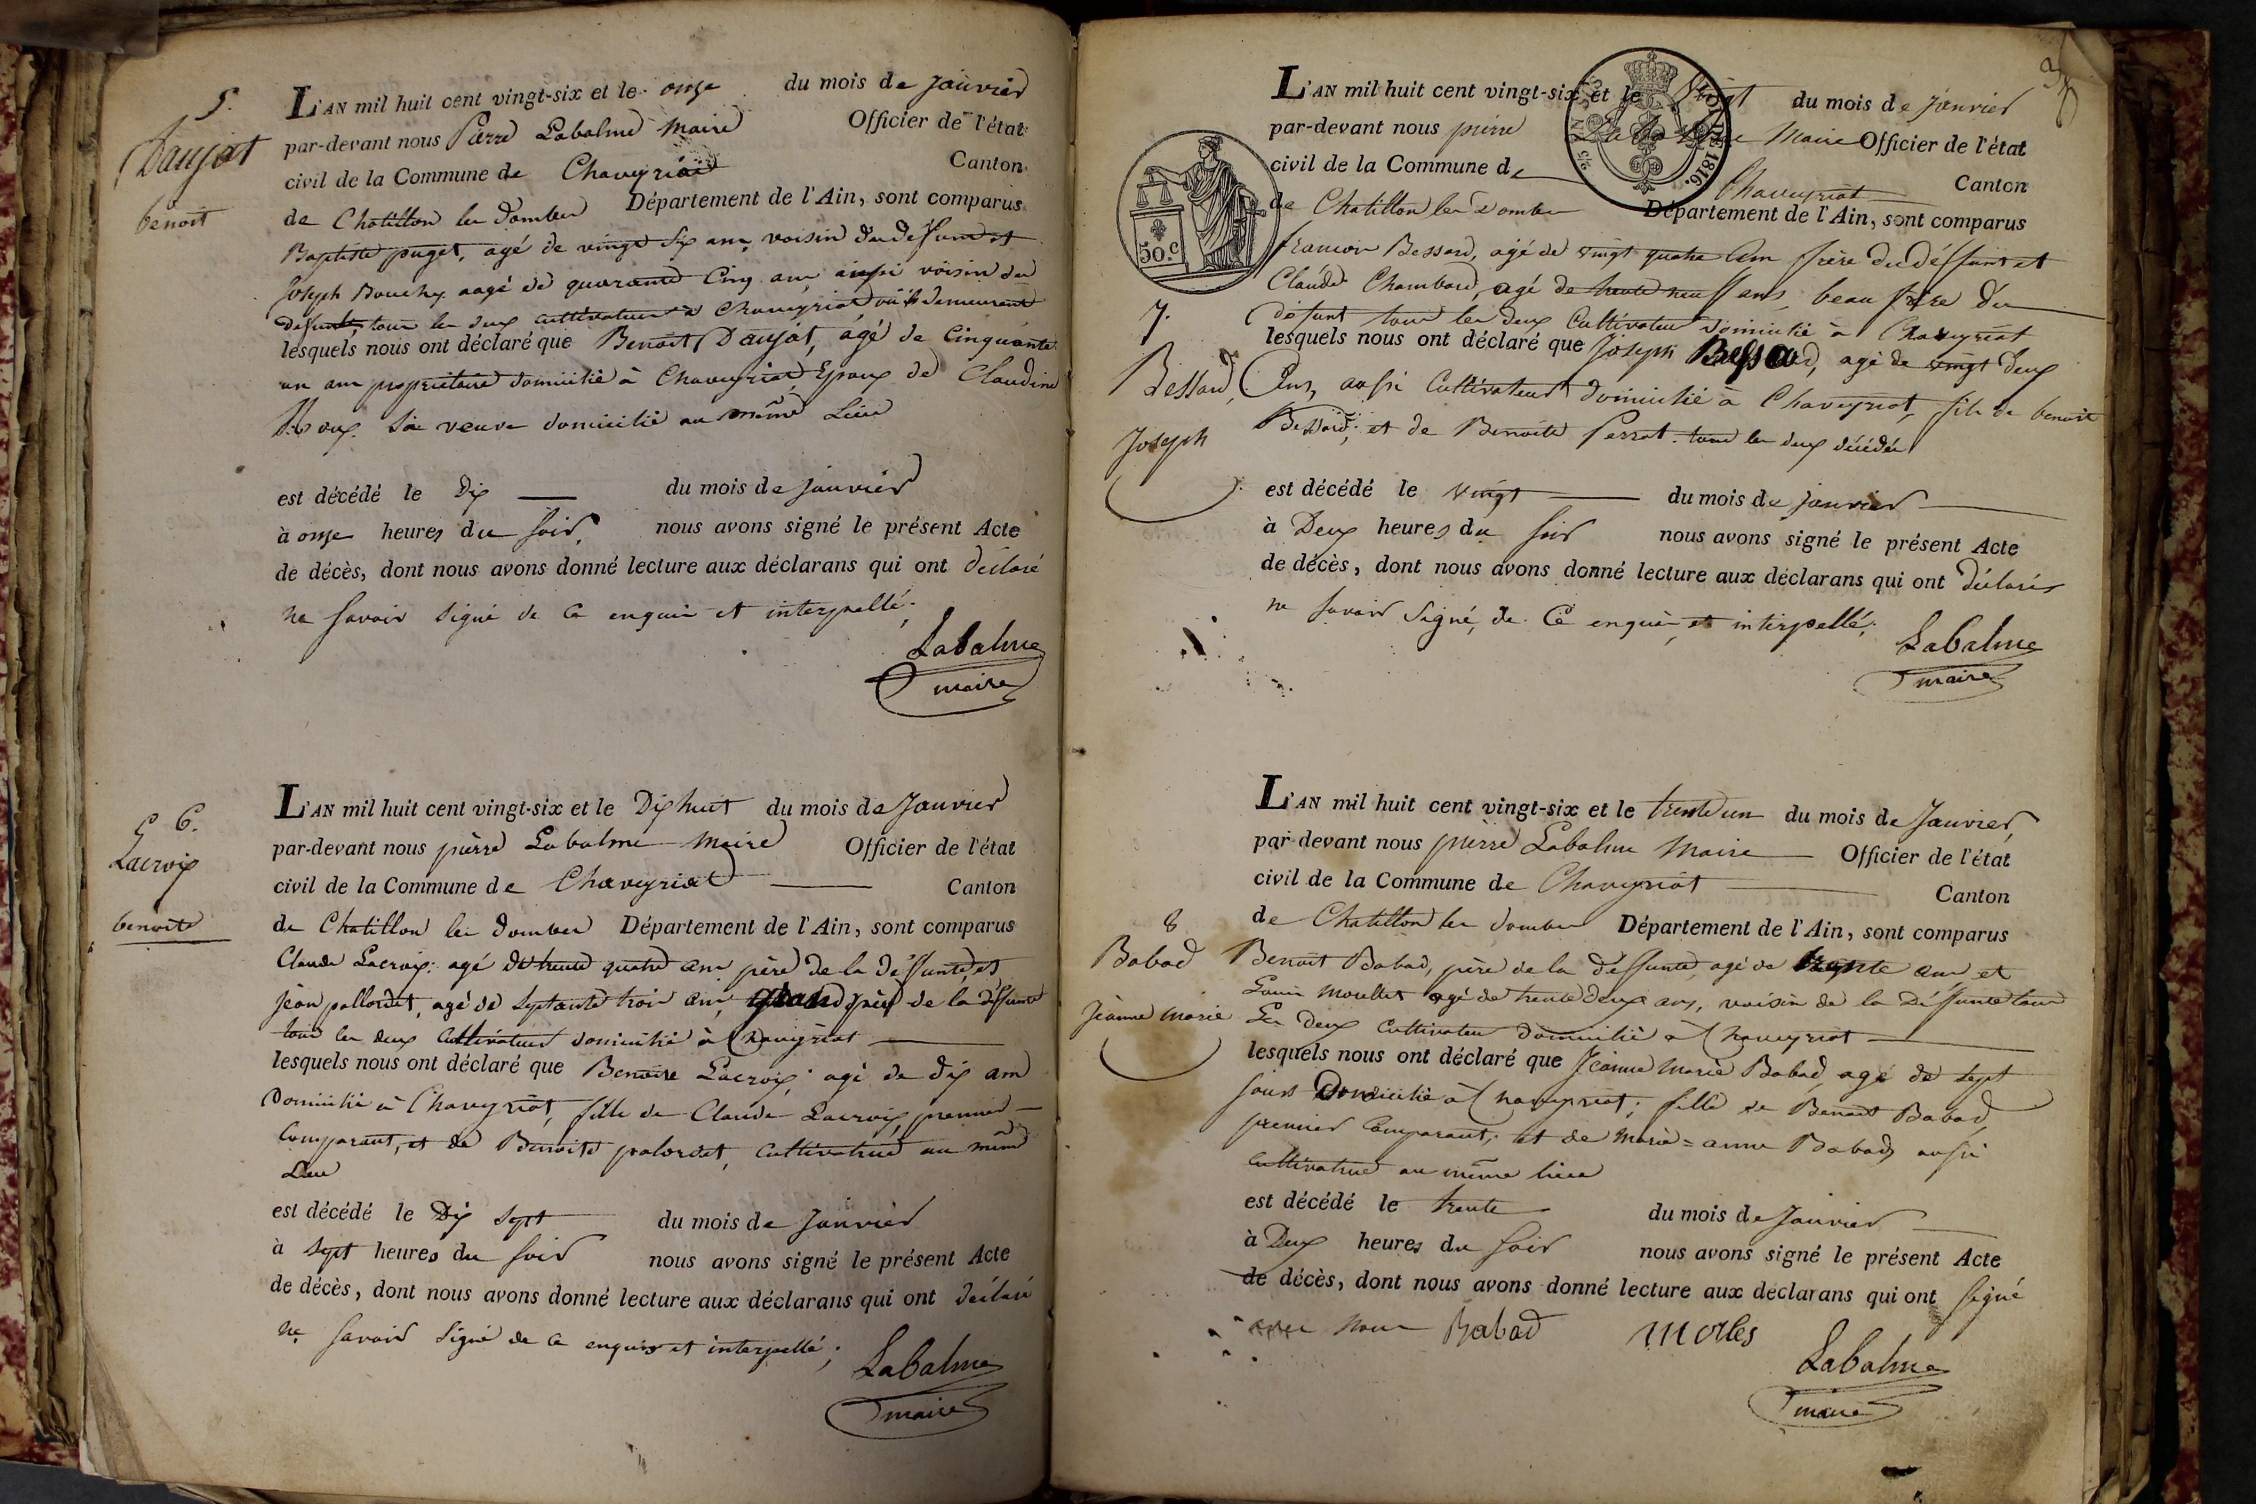 5.
Daujat
benoit
L'AN mil huit cent vingt-six et le onze du mois de janvier
par-devant nous Pierre Labalme Maire Officier de l'état
civil de la Commune de Chaveyriat Canton
de Chatillon les Dombes Département de l'Ain, sont comparus
Baptiste puget, agé de vingt six ans, voisin du deffunt et
Joseph Bouchy aagé de quarante Cinq ans aussi voisin du
defunt, tous les deux cultivateurs à Chaveyriat où ils demeurent
lesquels nous ont déclaré que Benoit Daujat, agé de Cinquante
un ans propriétaire domicilié à Chaveyriat, Epoux de Claudine
Roux sa veuve domicilié au même Lieu
est décédé le Dix du mois de janvier
à onze heures du soir, nous avons signé le présent Acte
de décès, dont nous avons donné lecture aux déclarans qui ont déclaré
ne savoir signé de ce enquis et interpellé.
Labalme
maire
6.
Lacroix
benoite
L'AN mil huit cent vingt-six et le Dix huit du mois de Janvier
par-devant nous pierre Labalme Maire Officier de l'état
civil de la Commune de Chaveyriat Canton
de Chatillon les Dombes Département de l'Ain, sont comparus
Claude Lacroix, agé de trente quatre ans père de la deffunte, et
jean pallordet, agé de septante trois ans, grand père de la deffunte
tous les deux Cultivateurs domicilié à Chaveyriat
lesquels nous ont déclaré que Benoite Lacroix, agé de dix ans
Domicilié à Chaveyriat, fille de Claude Lacroix, premier
Comparant, et de Benoite palordet, Cultivatrice au même
Lieu
est décédé le Dix sept du mois de Janvier
à sept heures du soir nous avons signé le présent Acte
de décès, dont nous avons donné lecture aux déclarans qui ont déclaré
ne savoir signé de ce enquis et interpellé;
Labalme
maire
TIMBRE 1816.
50.c
L'AN mil huit cent vingt-six et le vingt du mois de janvier
par-devant nous pierre Labalme Maire Officier de l'état
civil de la Commune de Chaveyriat Canton
de Chatillon les Dombes Département de l'Ain, sont comparus
francois Bessard, agé de vingt quatre ans frère du déffunt et
Claude Chambard, agé de trente neuf ans, beau frère du
7.
Bessard,
Joseph
défunt tous les deux Cultivateur domicilié à Chaveyriat
lesquels nous ont déclaré que Joseph Bessard, agé de vingt deux
Ans, aussi Cultivateur domicilié à Chaveyriat, fils de benoit
Bessard, et de Benoite Perrat tous les deux décédés
est décédé le vingt du mois de janvier
à Deux heures du soir nous avons signé le présent Acte
de décès, dont nous avons donné lecture aux déclarans qui ont déclarés
ne savoir Signé, de Ce enquis, et interpellé;
Labalme
maire
L'AN mil huit cent vingt-six et le trente un du mois de Janvier
par-devant nous pierre Labalme Maire Officier de l'état
civil de la Commune de Chaveyriat Canton
de Chatillon les Dombes Département de l'Ain, sont comparus
8
Babad
Jeanne marie
Benoit Babad, père de la déffunte agé de trente ans, et
Louis Moullet agé de trente deux ans, voisin de la Déffunte tous
Les deux cultivateur domicilié à Chaveyriat
lesquels nous ont déclaré que Jeanne Marie Babad, agé de sept
jours Domicilié à Chaveyriat, fille de Benoit Babad
premier Comparant, et de Marie=anne Babad, aussi
Cultivatrice au même lieu
est décédé le trente du mois de Janvier
à Deux heures du soir nous avons signé le présent Acte
de décès, dont nous avons donné lecture aux déclarans qui ont signé
avec nous Babad
Labalme
maire